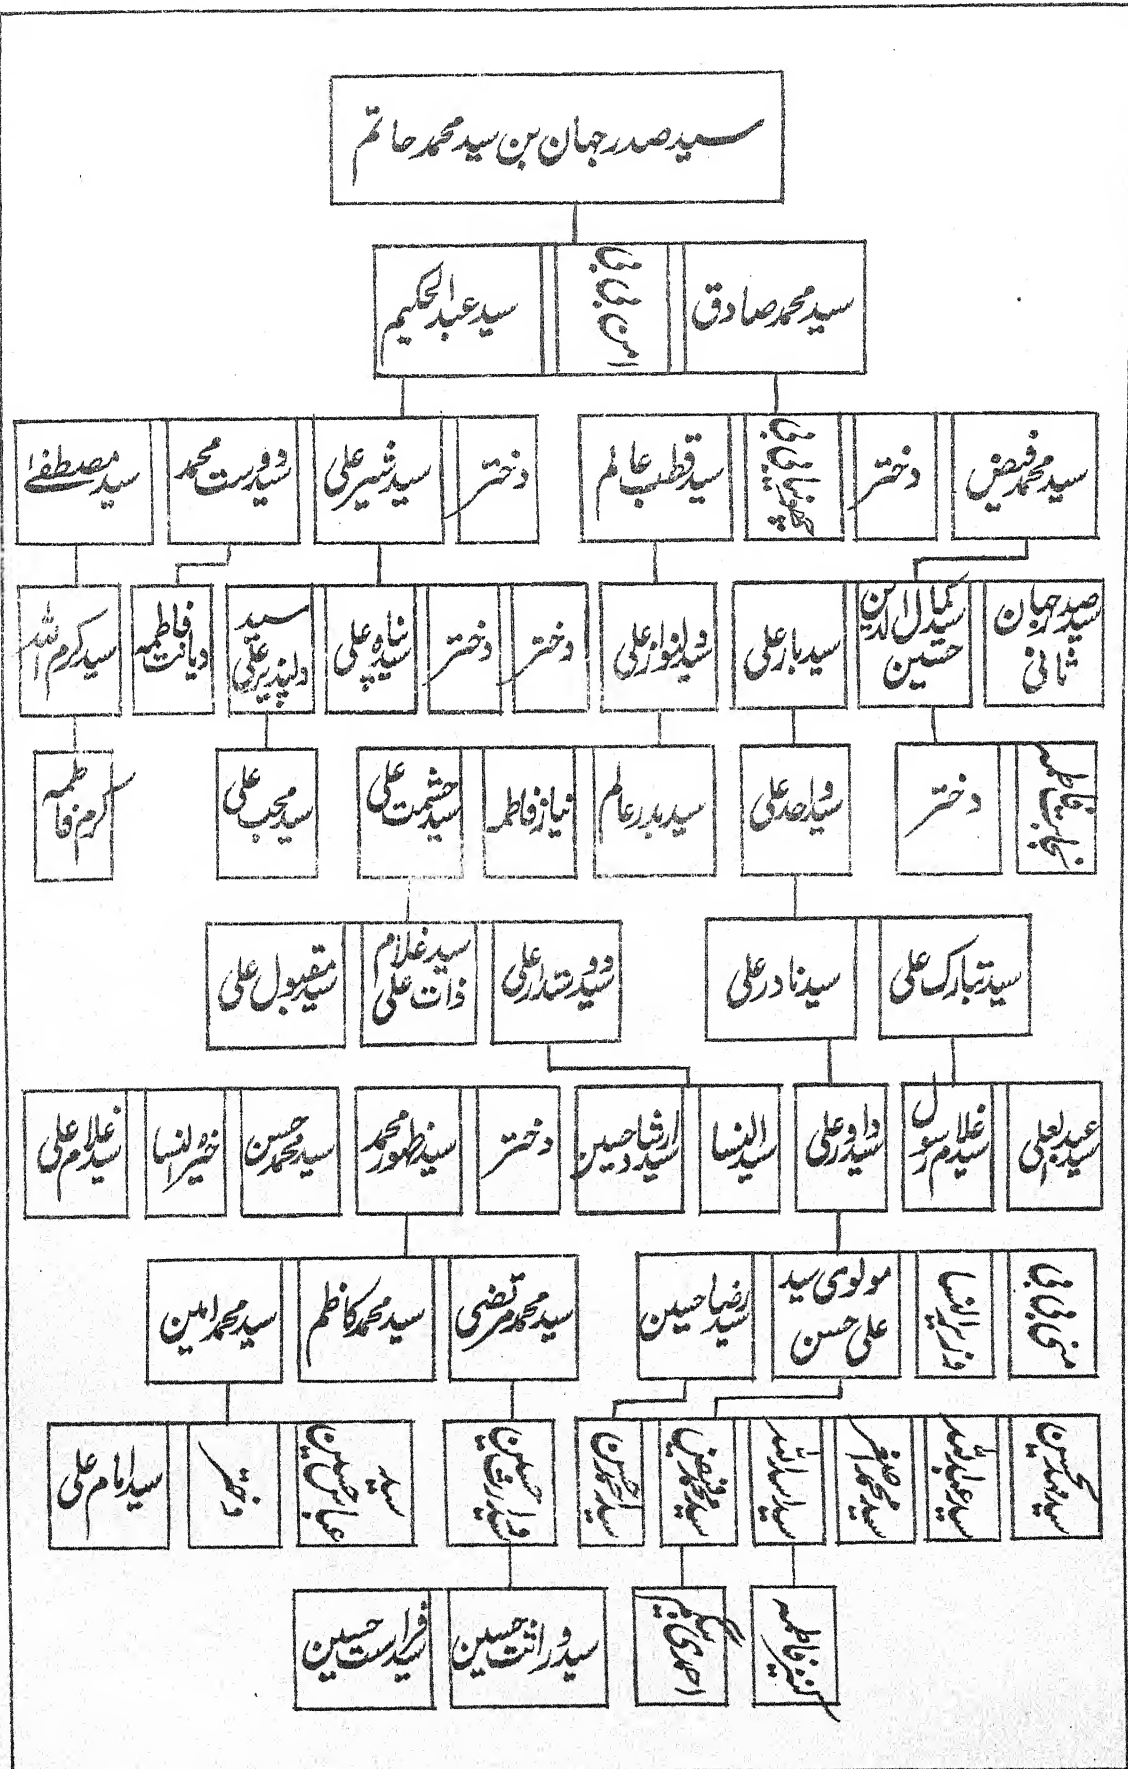 سید صدر جہان بن سید محمد حاتم
سید محمد صادق
امن بی بی
سید عبدالحکیم
سید محمد فیض
دختر
بی بی
سید قطب عالم
دختر
سید شیر علی
سید دوست محمد
سید مصطفے
سید صدر جہان
ثانی
سید کمال الدین
حسین
سید یار علی
سید دلنواز علی
دختر
دختر
سید پناہ علی
سید
دلپذیر علی
دیانت فاطمہ
سید کرم اللہ
نجابت فاطمہ
دختر
سید واحد علی
سید بدر عالم
نیاز فاطمہ
سید حشمت علی
سید محب علی
کرم فاطمہ
سید تبارک علی
سید نادر علی
سید دوستدار علی
سید غلام
ذات علی
سید مقبول علی
سید عبدالعلی
سید غلام رسول
سید داور علی
سید النسا
سید ارشاد حسین
دختر
سید ظہور محمد
سید محمد حسن
خیر النسا
سید غلام علی
منی بی بی
وزیر النسا
مولوی سید
علی حسن
سید رضا حسین
سید محمد مرتضی
سید محمد کاظم
سید محمد امین
سید محمد حسین
سید عبداللہ
سید محمد اصغر
سید اسد اللہ
سید محمد فیض
سید احمد حسن
سید وارث حسین
سید
عباس حسین
دختر
سید امام علی
کنیز فاطمہ
احمدی بیگم
سید وراثت حسین
سید فراست حسین